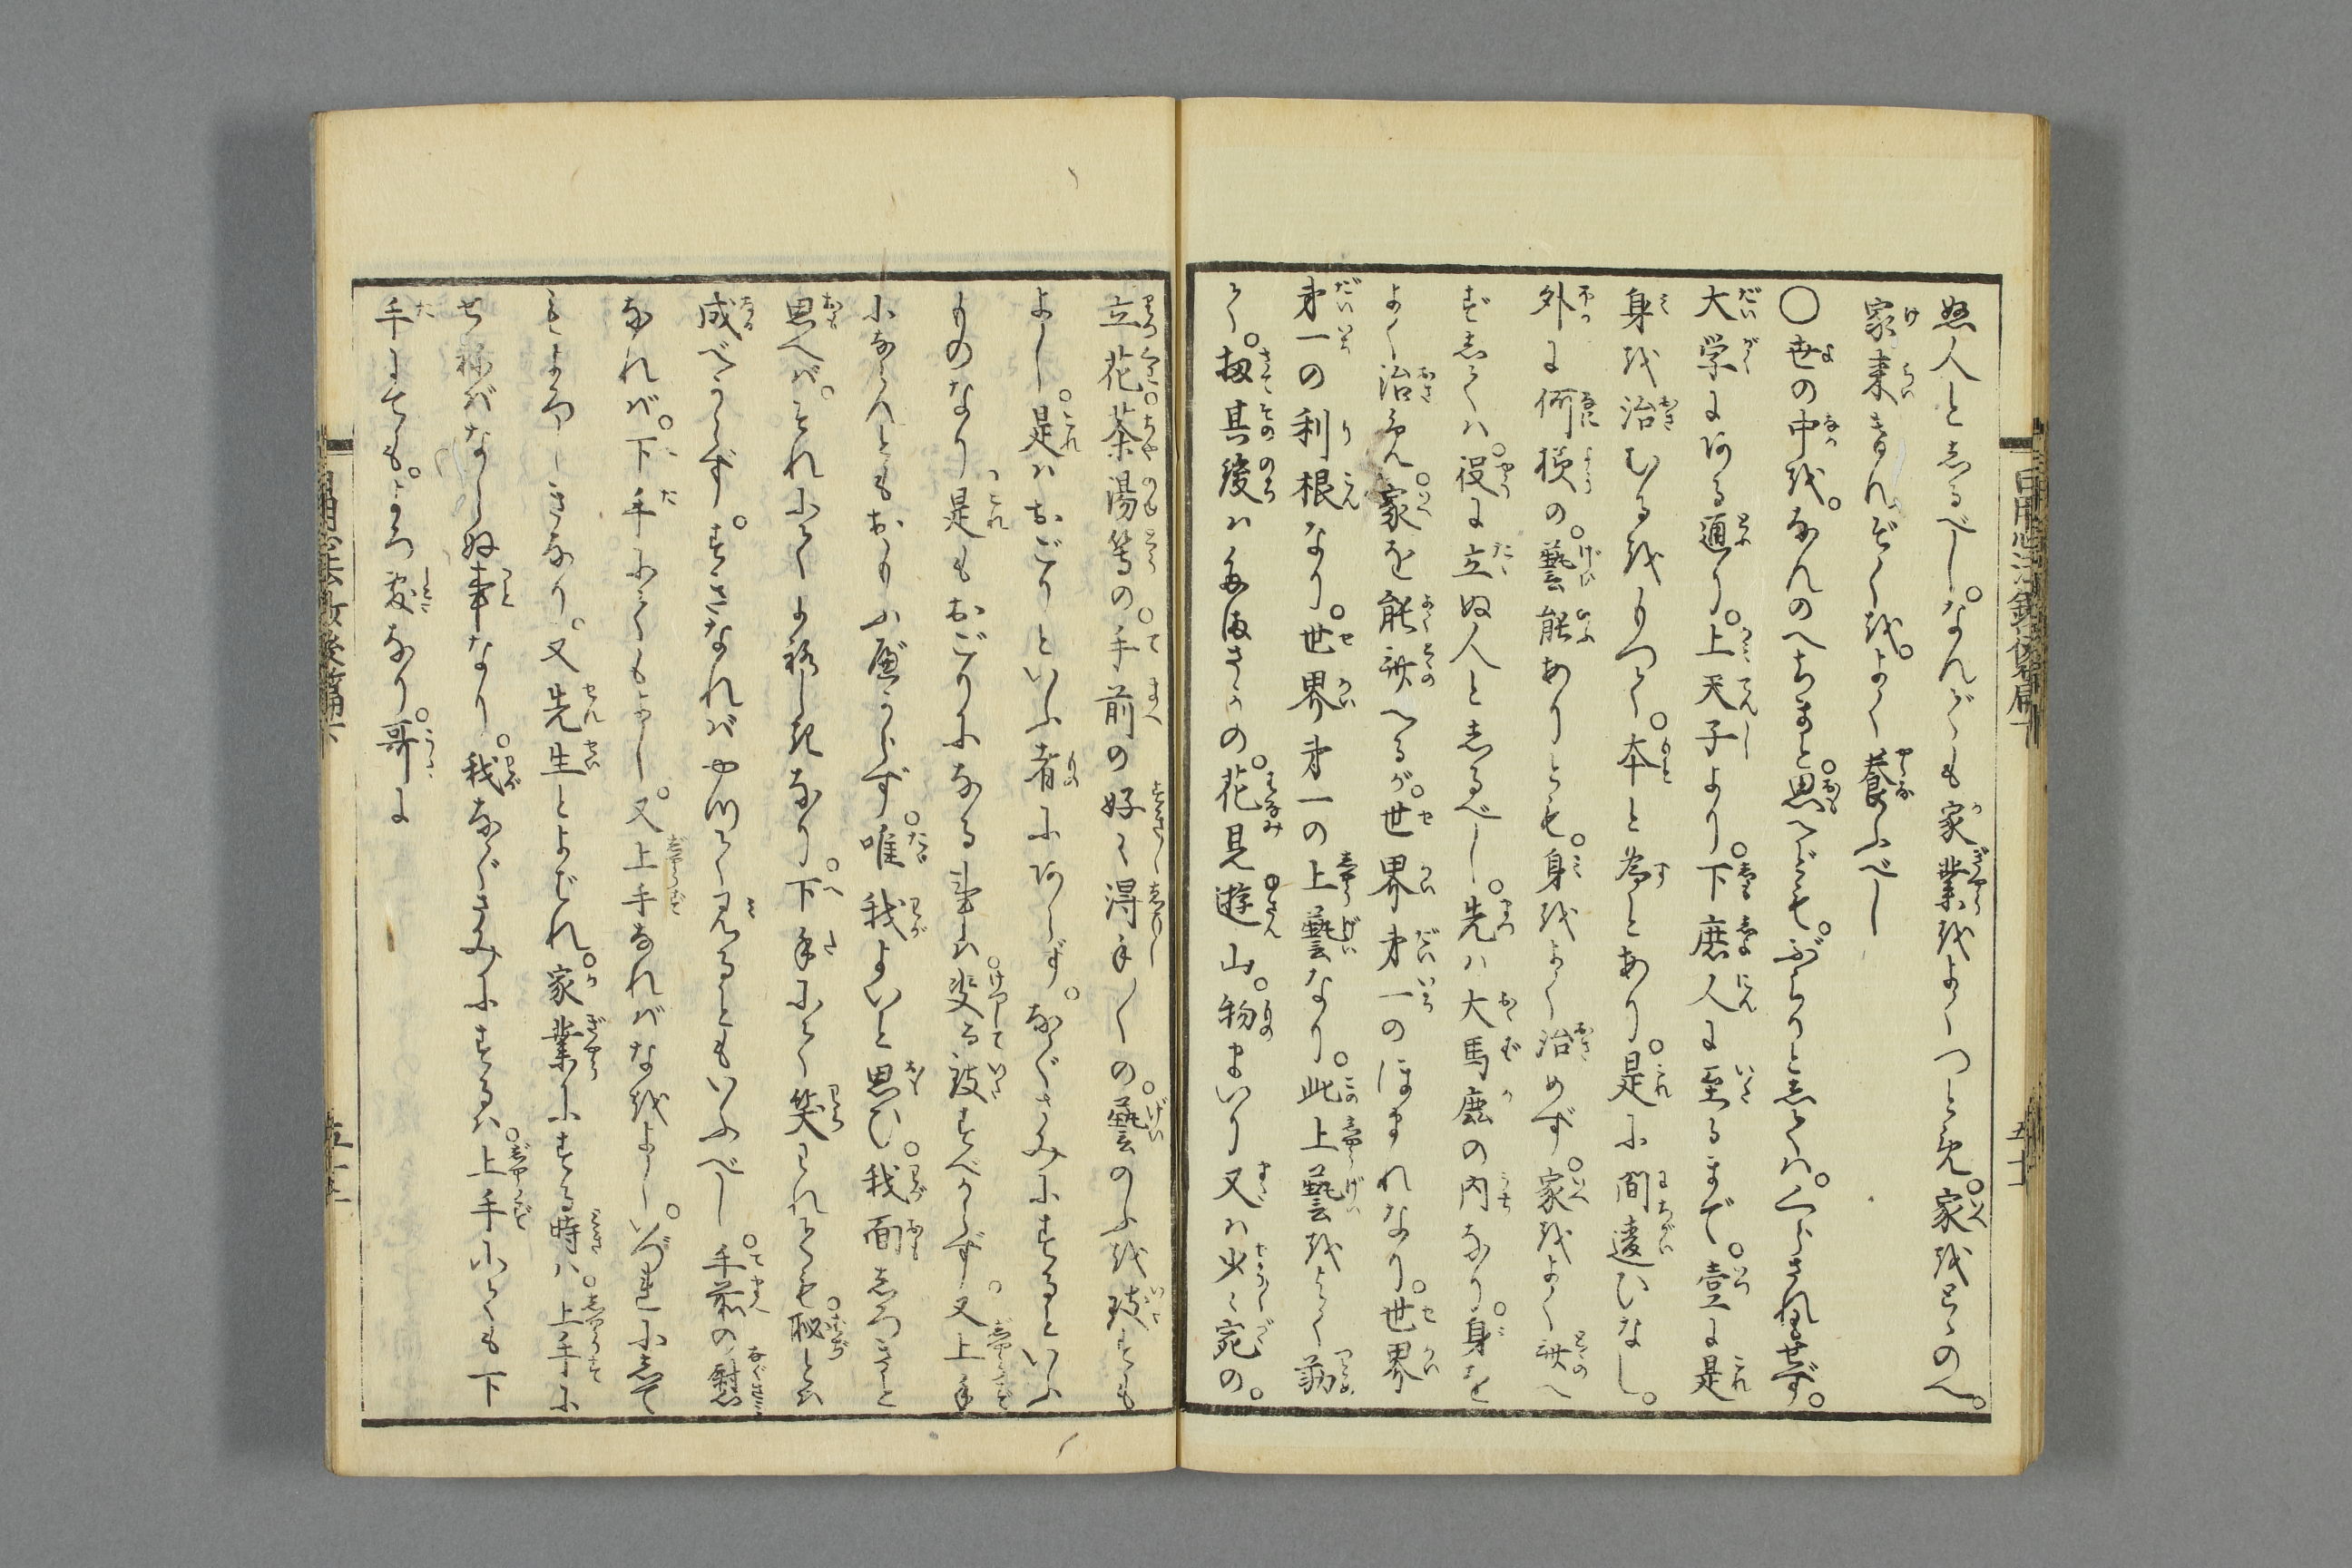 愚人としるべし。なんぞも家業をよくつとめ。家をとゝのへ。
家来きれぞくを。よく養ふべし
〇世の中を。なんのへちまと思へども。ぶらりとしては。くらされもせず。
大学にある通り。上天子より。下庶人に至るまで。壹に是
身を治むるをもつて。本と為とあり。是に間違ひなし。
外に何様の。藝能ありとも。身をよく治めず。家をよく斉へ
ずしては。役に立ぬ人としるべし。先は大馬鹿の内なり。身を
よく治め。家を能斉へるが。世界第一のほまれなり。世界
第一の利根なり。世界第一の上藝なり。此上藝をよく勤
て。扨其後はなほさらの。花見遊山。物まいり又は少々宛の。
立花。茶湯等の。手前の好々得手〳〵の。藝のふを致すも
よし。是はおごりといふ者にあらず。なぐさみにするといふ
ものなり是もおごりになる事は決而致すべからず。又上手
にならんともおもふ慮からず。唯我よいと思ひ。我面しろきと
思へば。それにてよろしきなり。下手にて笑われても秘とは
成べからず。すきなればやめて見るともいふべし。手前の慰
なれば。下手にてもよし。又上手なればなをよし。いづれにして
もよろしきなり。又先生とよばれ。家業にする時は。上手に
せねばならぬ事なり。我なぐさみにするは。上手にても下
手にても。よろ敷なり。哥に